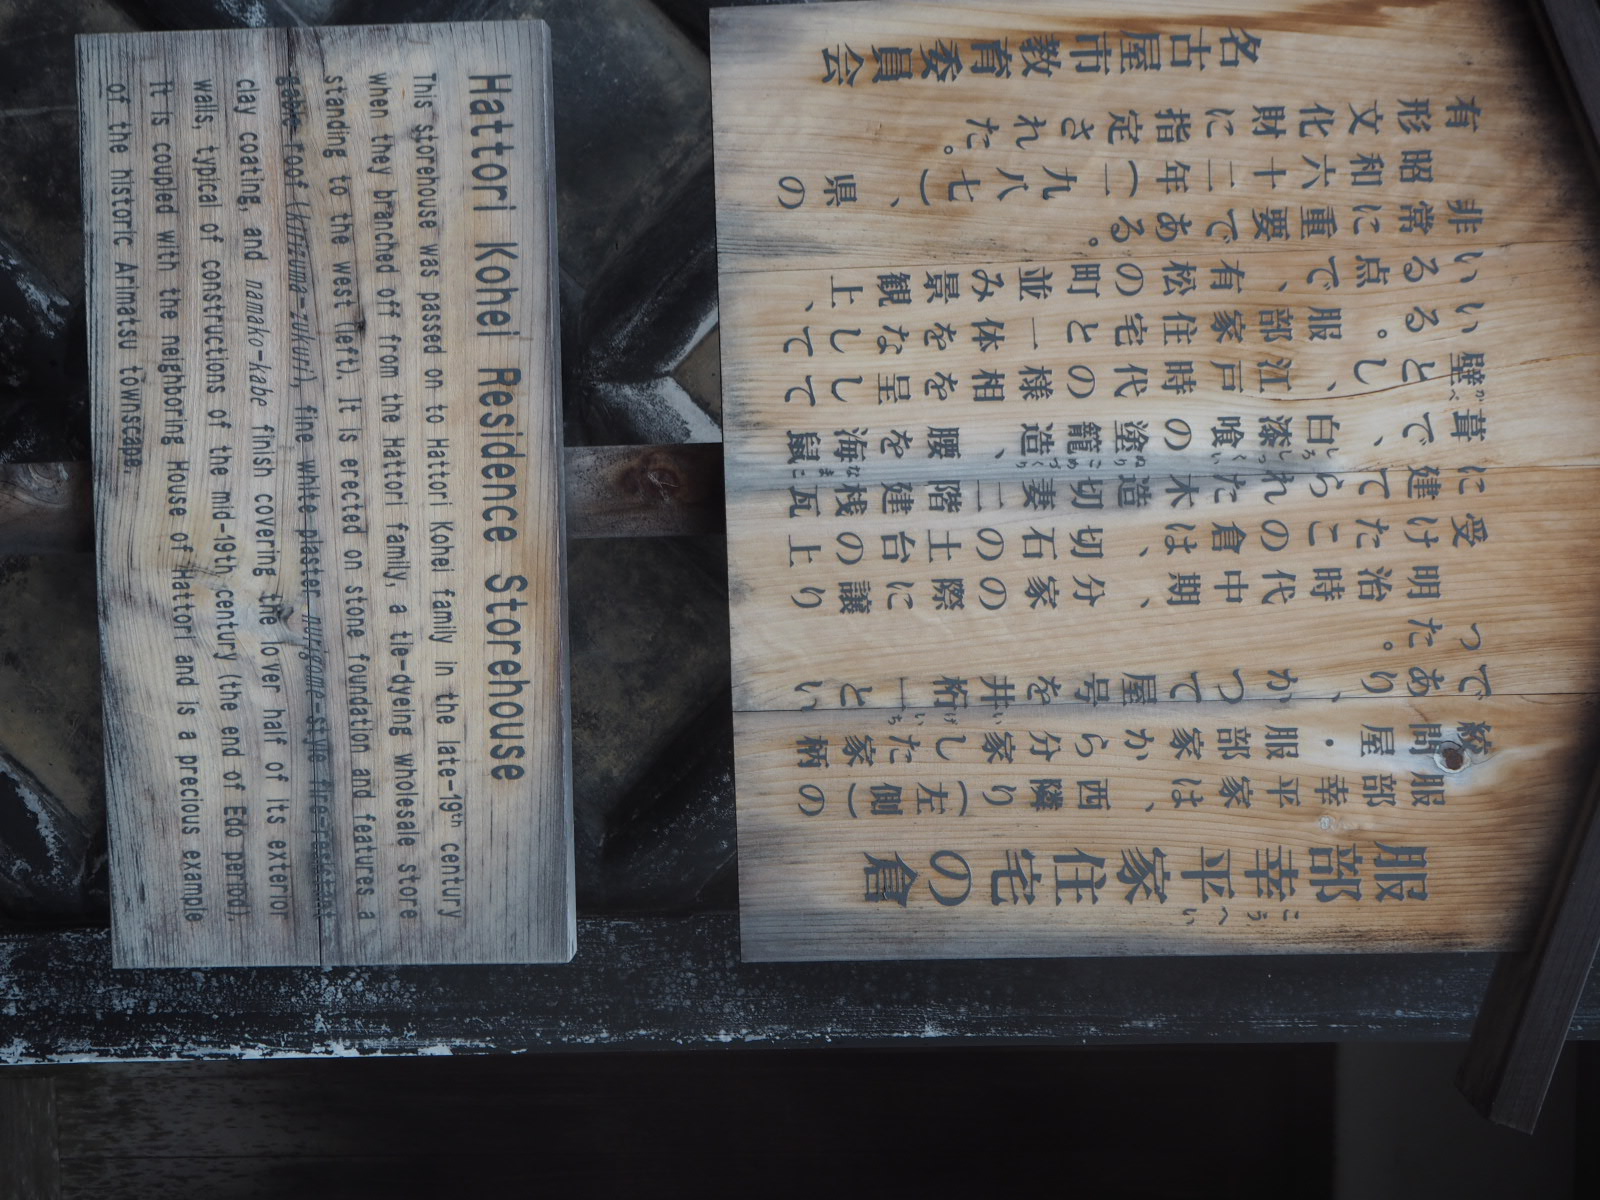 服部幸平家住宅の倉
こうへい
服部幸平家は、西隣り(左側)の
絞問屋・服部家から分家した家柄
であり、かつて屋号を井桁一とい
った。
明治時代中期、分家の際に譲り
受けたこの倉は、切石の土台の上
に建てられた木造切妻二階建桟瓦
葺で、白漆喰の塗籠造、腰を海鼠
壁とし、江戸時代の様相を呈して
いる。服部家住宅と一体をなして
いる点で、有松の町並み景観上、
非常に重要である。
昭和六十二年(一九八七)、県の
有形文化財に指定された。
名古屋市教育委員会
Hattori Kohei Residence Storehouse
This storehouse was passed on to Hattori Kohei family in the late-19th century
when they branched off from the Hattori family, a tie-dyeing wholesale store
standing to the west (left). It is erected on stone foundation and features a
gable roof (kirizuma-zukuri), fine white plaster nurigome-style fire-resistant
clay coating, and namako-kabe finish covering the lower half of its exterior
walls, typical of constructions of the mid-19th century (the end of Edo period).
It is coupled with the neighboring House of Hattori and is a precious example
of the historic Arimatsu townscape.